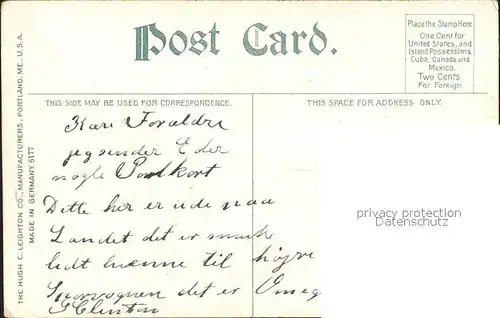 Post Card.
Place the Stamp Here
One Cent for
United States, and
Island Possessions,
Cuba, Canada and
Mexico.
Two Cents
For Foreign.
THIS SIDE MAY BE USED FOR CORRESPONDENCE.
THIS SPACE FOR ADDRESS ONLY.
THE HUGH C. LEIGHTON CO., MANUFACTURERS, PORTLAND, ME., U.S.A.
MADE IN GERMANY. 5177
Kare Foraldre
jeg sender Eder
nogle Postkort
Dette her er ude paa
Landet det er smuk
lidt henne til højre
det er Omeg
Clinton
privacy protection
Datenschutz